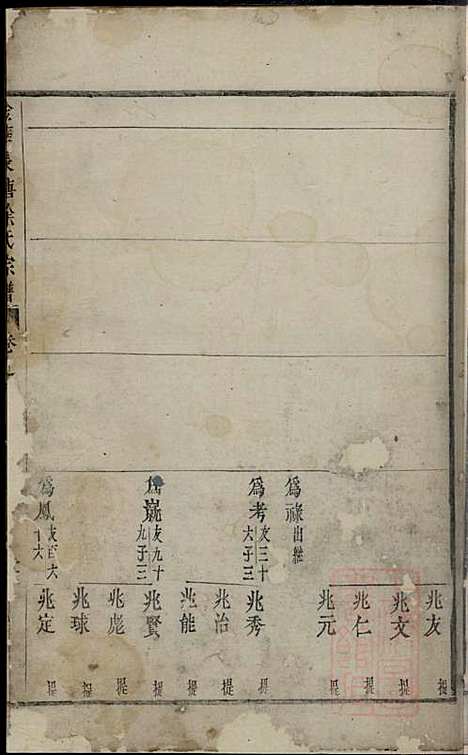 爲祿出繼
爲考友三十大子三
爲巍友九十九子三
爲鳳友百六十六
兆友 提
兆文 提
兆仁 提
兆元 提
兆秀 提
兆治 提
兆能 提
兆賢 提
兆彪 提
兆球 提
兆定 提
塘徐氏宗譜 卷